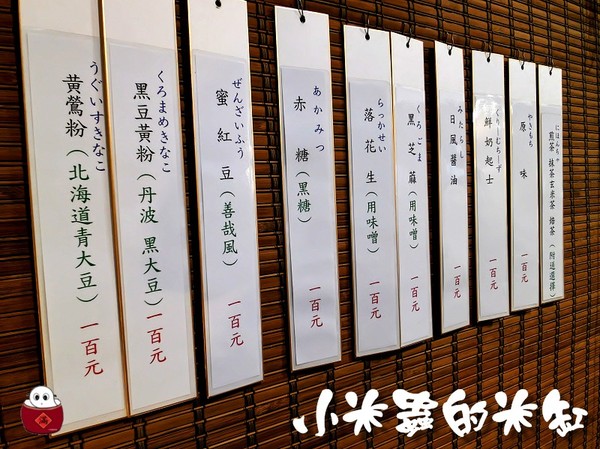 にほんちゃ
煎茶 抹茶玄米茶 焙茶（附送選擇）
やきもち
原味
一百元
くりーむちーず
鮮奶起士
一百元
みたらし
日風醬油
一百元
くろごま
黑芝蔴（用味噌）
一百元
らっかせい
落花生（用味噌）
一百元
あかみつ
赤糖（黑糖）
一百元
ぜんざいふう
蜜紅豆（善哉風）
一百元
くろまめきなこ
黑豆黃粉（丹波 黑大豆）
一百元
うぐいすきなこ
黃鶯粉（北海道青大豆）
一百元
小米蟲的米缸